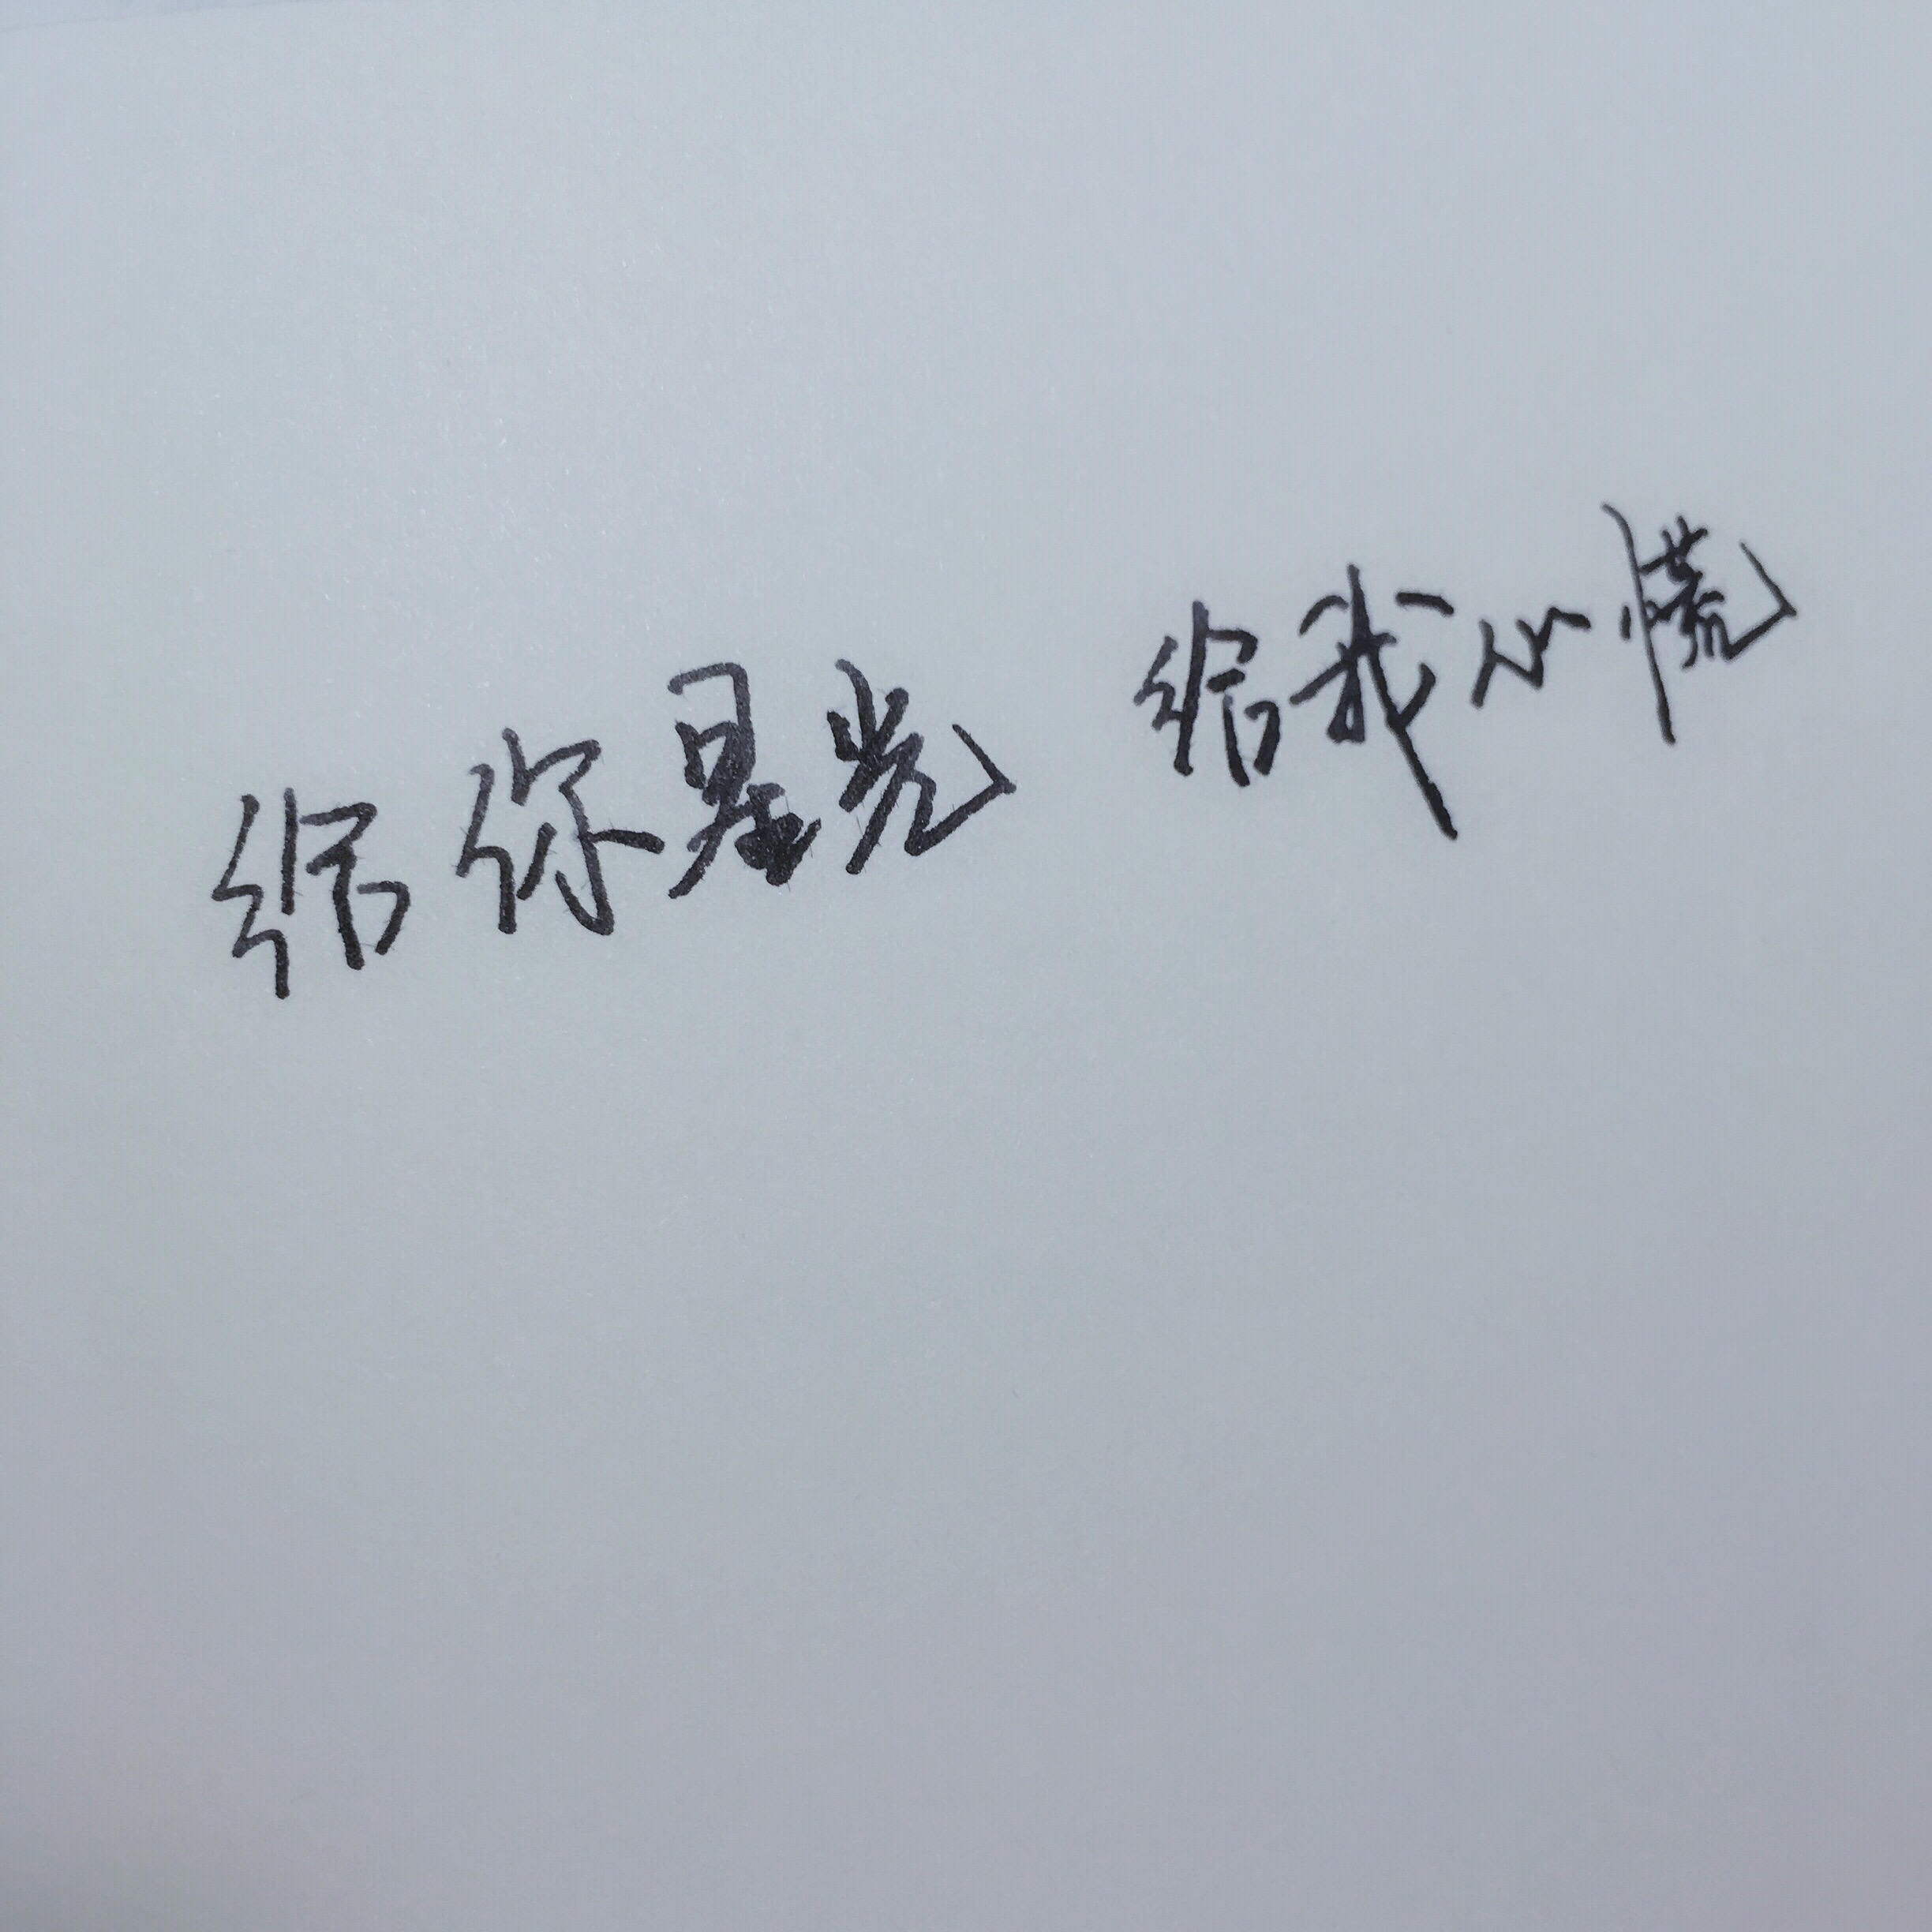 给你星光 给我心慌